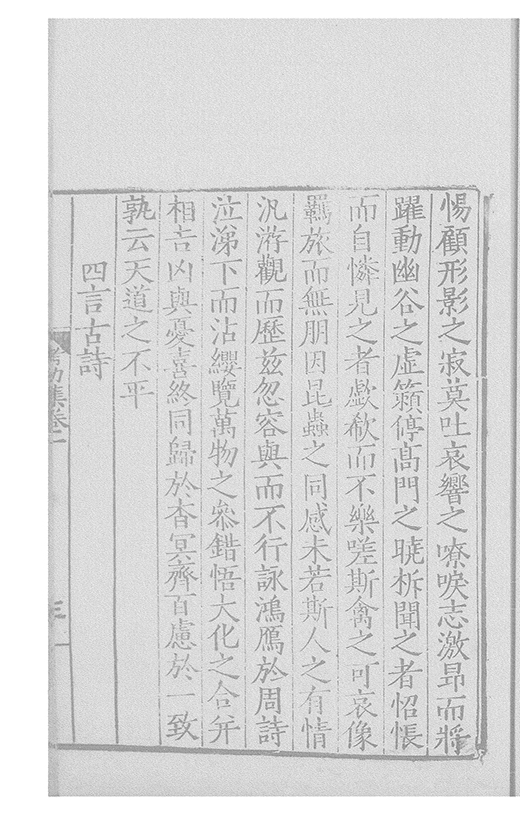 惕顧形影之寂莫吐哀響之嘹唳志激昻而將
躍動幽谷之虛籟停高門之曉柝聞之者怊悵
而自憐見之者歔欷而不樂嗟斯禽之可哀像
羈旅而無朋因昆蟲之同感未若斯人之有情
汎游觀而歷茲忽容與而不行詠鴻鴈於周詩
泣涕下而沾纓覽萬物之叅錯悟大化之合幷
相吉凶與憂喜終同歸於杳冥齊百慮於一致
孰云天道之不平
四言古詩
考功集卷一